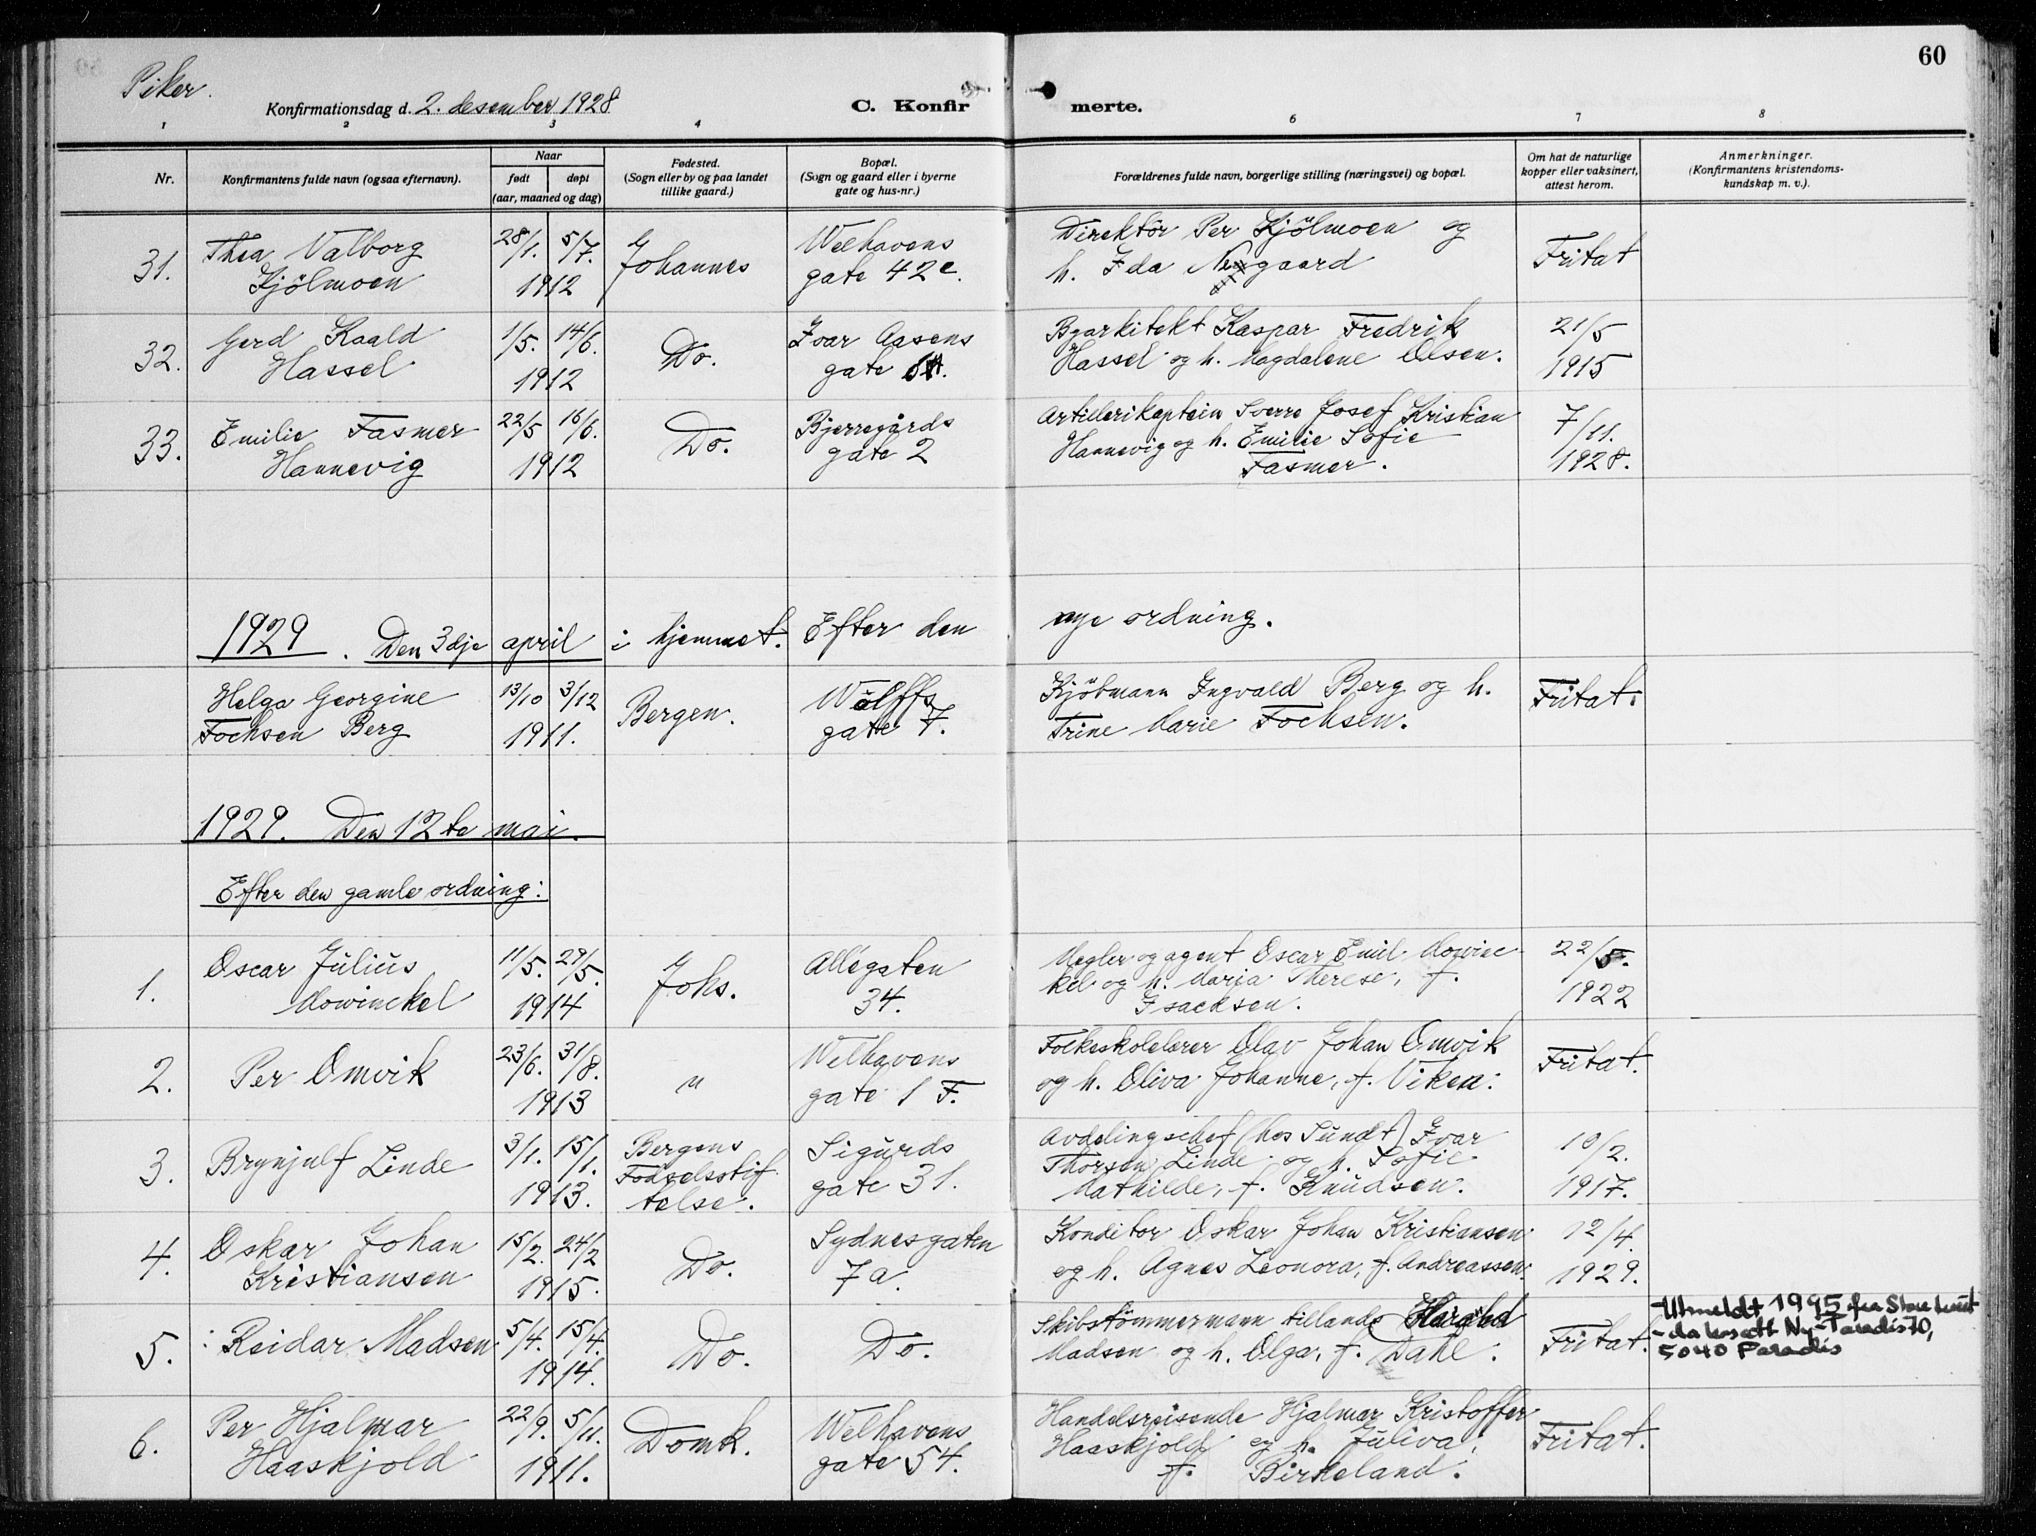 60
Piker.
Konfirmationsdag d. 2. desember 1928
C. Konfir
merte.
1 2 3 4 6 7 8
Nr.
Konfirmantens fulde navn (ogsaa efternavn).
Naar
født døpt
(aar, maaned og dag)
Fødested.
(Sogn eller by og paa landet
tillike gaard.)
Bopæl.
(Sogn og gaard eller i byerne
gate og hus-nr.)
Forældrenes fulde navn, borgerlige stilling (næringsvei) og bopæl.
Om hat de naturlige
kopper eller vaksinert,
attest herom.
Anmerkninger.
(Konfirmantens kristendoms-
kundskap m. v.).
31. Thea Valborg Kjölmoen 28/1. 5/7. 1912 Johannes Welhavens gate 42e. Direktör Per Kjölmoen og h. Ida Nygaard Fritat
32. Gerd Kaald Hassel 1/5. 14/6. 1912 Do. Ivar Aasens gate Bgarkitekt Kaspar Fredrik Hassel og h. Magdalene Olsen. 21/5 1915
33. Emilie Fasmer Hannevig 22/5 16/6. 1912 Do. Bjerregårds gate 2 Artillerikaptein Sverre Josef Kristian Hannevig og h. Emilie Sofie Fasmer. 7/11. 1928.
1929. Den 3dje april i hjemmet. Efter den nye ordning.
Helga Georgine Fochsen Berg 13/10 3/12 1911. Bergen. Wolffs gate 7. Kjöbmann Ingvald Berg og h. Trine Marie Fochsen. Fritat.
1929. Den 12te mai.
Efter den gamle ordning:
1. Oscar Julius Mowinckel 11/5. 29/5. 1914 Johs. Allégaten 34. Megler og agent Oscar Emil Mowinckel og h. Marja Therese, f. Isachsen. 22/5. 1922
2. Per Omvik 23/6. 31/8. 1913 " Welhavens gate 1 F. Folkeskolelærer Olav Johan Omvik og h. Oliva Johanne, f. Viken: Fritat.
3. Brynjulf Linde 3/1. 15/1. 1913. Bergens Födselsstiftelse. Sigurds gate 31. Avdelingschef (hos Sundt) Ivar Thorsen Linde og h. Sofie Mathilde, f. Knudsen. 10/2. 1917.
4. Oskar Johan Kristiansen 15/2. 24/2 1915. Do. Sydnesgaten 7a. Konditor Oskar Johan Kristiansen og h. Agnes Leonora, f. Andreassen. 12/4. 1929.
5. Reidar Madsen 5/4. 15/4. 1914. Do. Do. Skibstömmermann tillands Harald Madsen og h. Olga, f. Dahl. Fritat. Utmeldt 1995 fra
Ny-Paradis 70,
5040 Paradis
6. Per Hjalmar Haaskjold 22/9. 5/11. 1911. Domk. Welhavens gate 54. Handelsreisende Hjalmar Kristoffer Haaskjold og h. Juliva, f. Birkeland. Fritat.